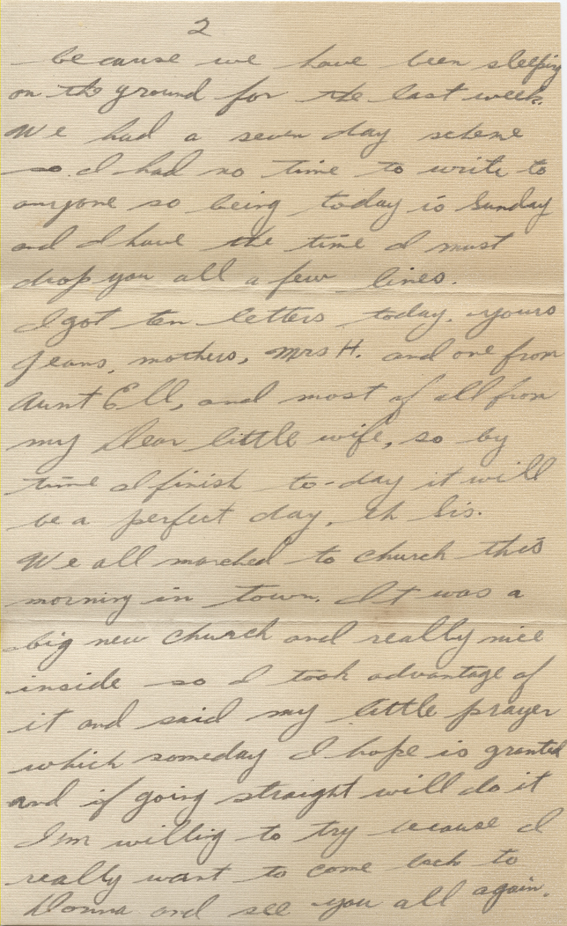 2
because we have been sleeping
on the ground for the last week.
We had a seven day scheme
so I had no time to write to
anyone so being today is Sunday
and I have the time I must
drop you all a few lines.
I got ten letters today. yours
Jeans, mothers, Mrs H. and one from
Aunt Ell, and most of all from
my dear little wife, so by
time I finish to-day it will
be a perfect day, eh Sis.
We all marched to church this
morning in town. It was a
big new church and really nice
inside so I took advantage of
it and said my little prayer
which someday I hope is granted
and if going straight will do it
I'm willing to try because I
really want to come back to
Donna and see you all again.